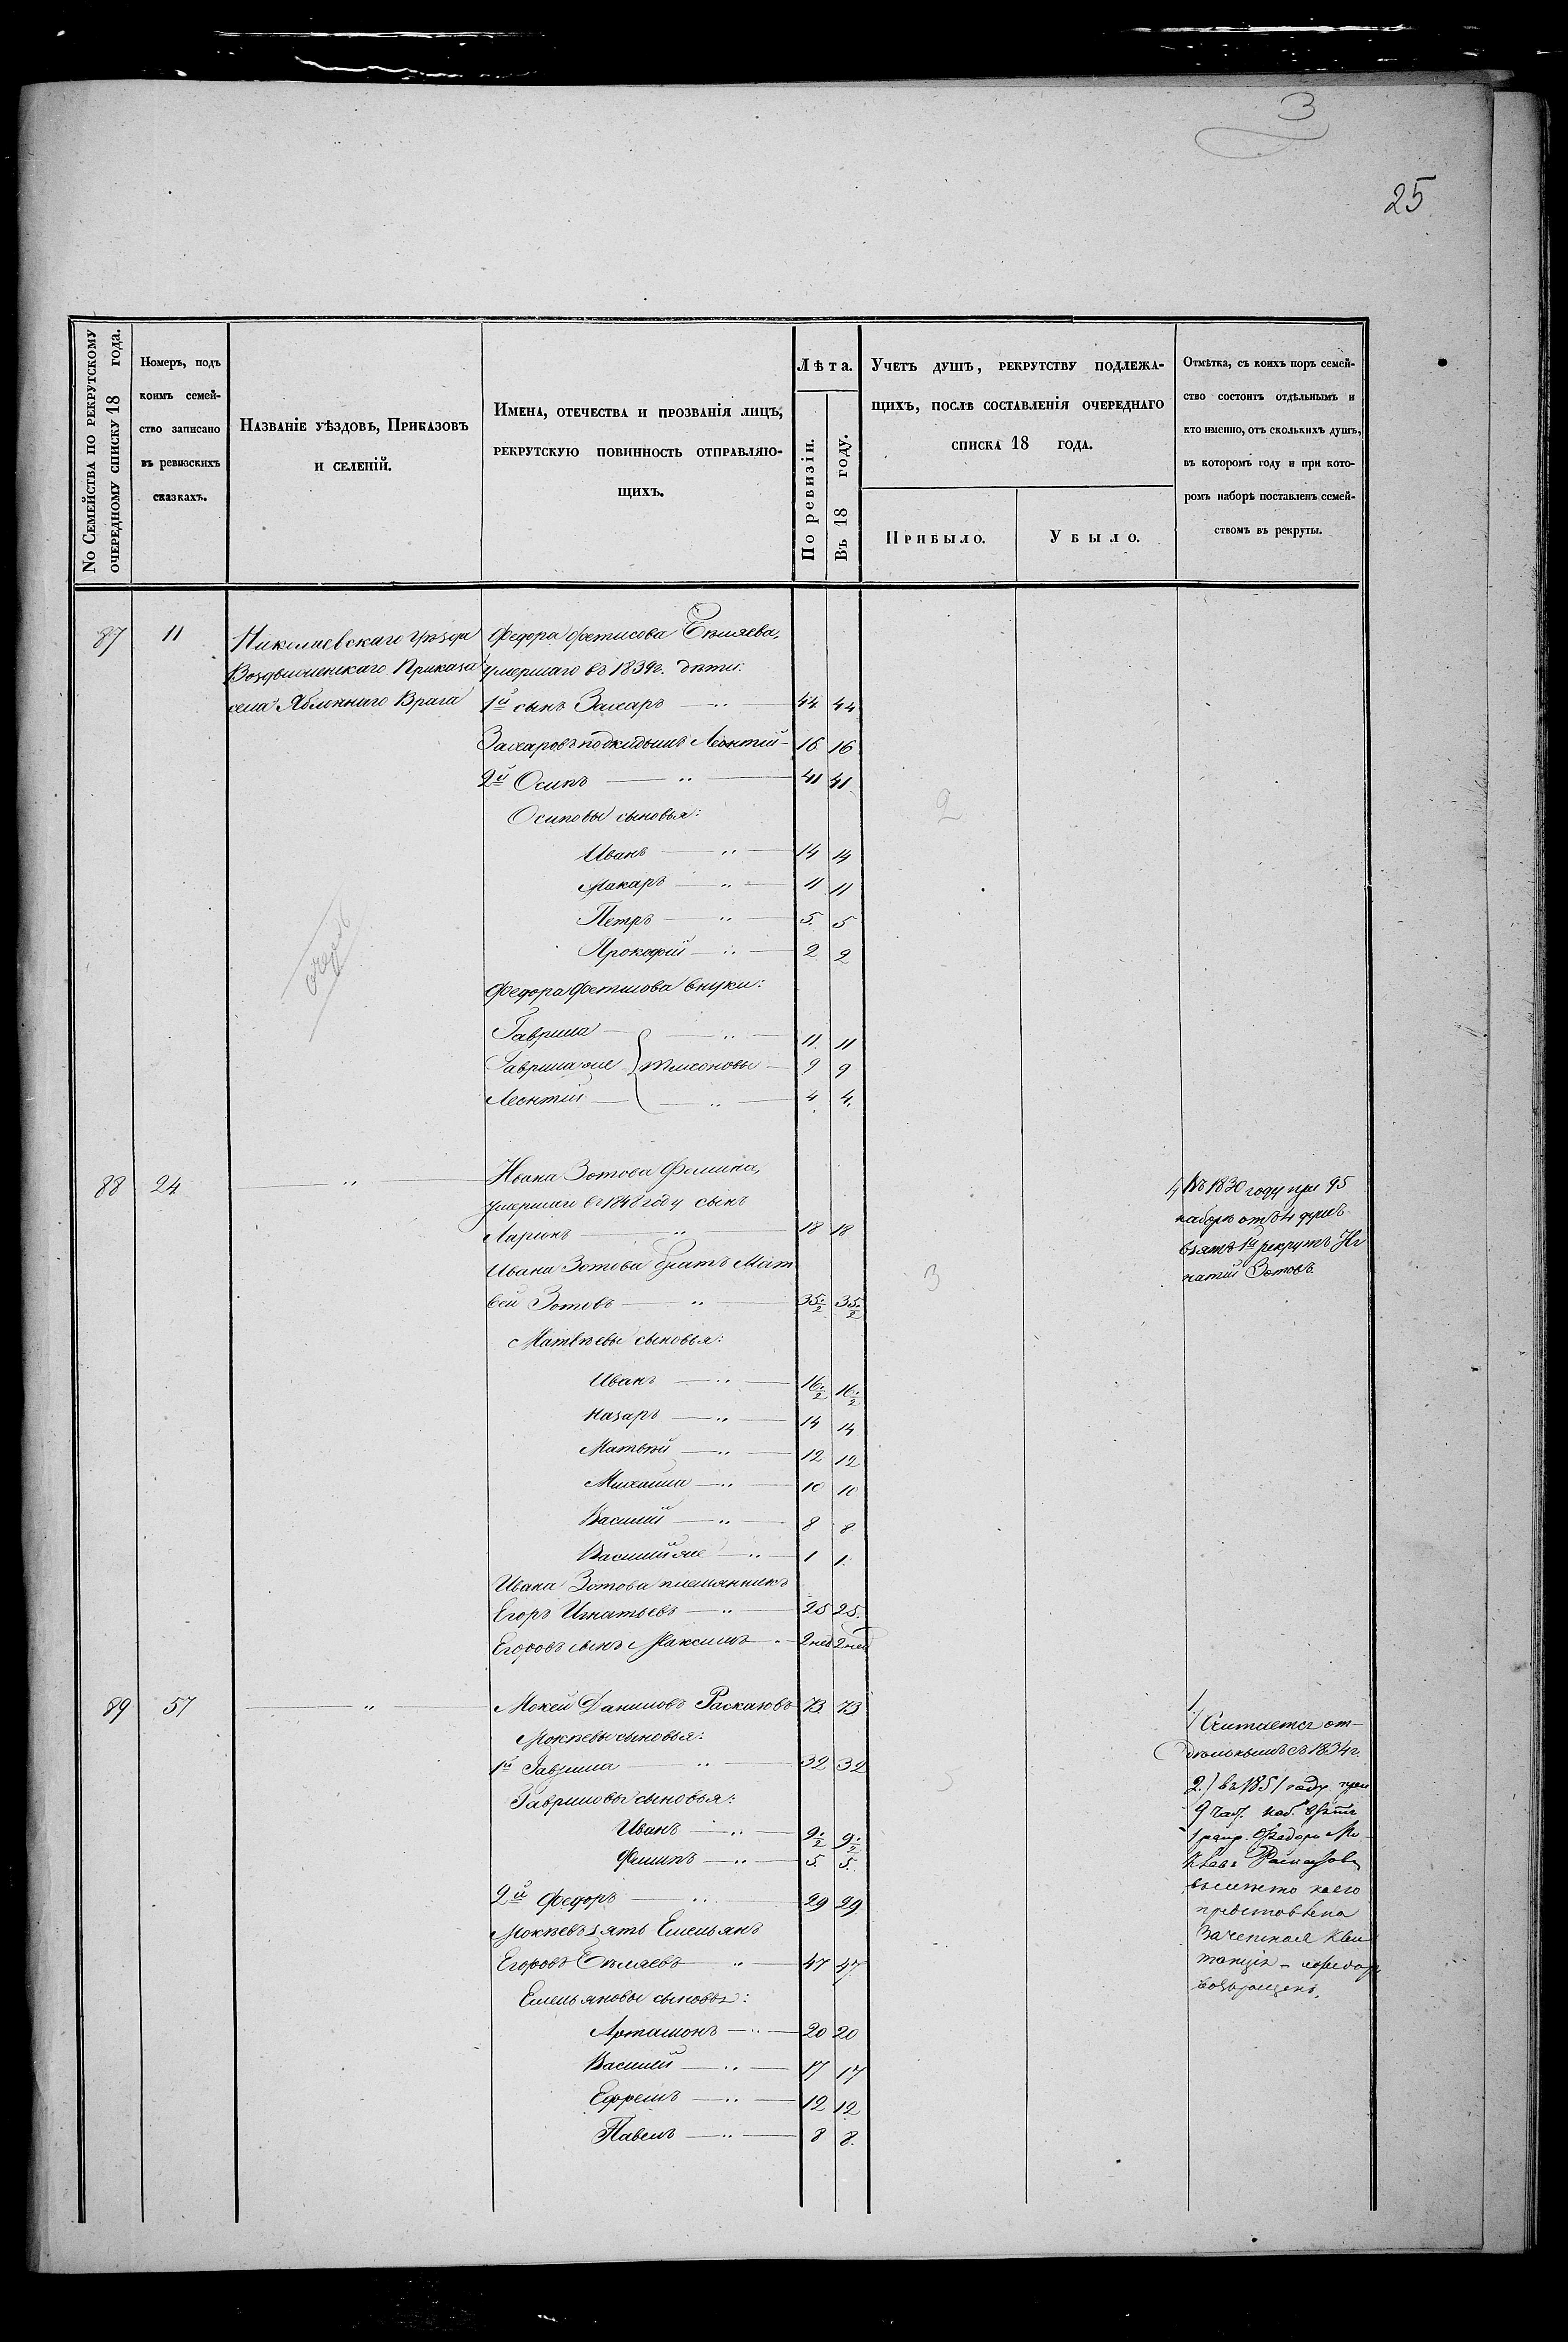 3
25
No Семейства по рекрутскому
очередному списку 18 года.
Номеръ, подъ
коимъ семей-
ство записано
въ ревизскихъ
сказкахъ.
Названіе уѣздовъ, Приказовъ
и селеній.
Имена, отечества и прозванія лицъ,
рекрутскую повинность отправляю-
щихъ.
Лѣта.
По ревизіи.
Въ 18 году.
Учетъ душъ, рекрутству подлежа-
щихъ, послѣ составленія очереднаго
списка 18 года.
Прибыло.
Убыло.
Отмѣтка, съ коихъ поръ семей-
ство состоитъ отдѣльнымъ и
кто именно, отъ сколькихъ душъ,
въ которомъ году и при кото-
ромъ наборѣ поставленъ семей-
ствомъ въ рекруты.
87 11 Николаевскаго уѣзда Федора Фетисова
Воздвиженскаго Приказа умершаго въ 1839г. дѣти:
села Яблоннаго Врага 1й сынъ Захаръ — „ — 44 44
Захаровъ подкидышъ Леонтій — 16 16
2й Осипъ — „ — 41 41
Осиповы сыновья:
2
Иванъ — „ — 14 14
Макаръ — „ — 11 11
Петръ — „ — 5. 5
Прокофій — „ — 2 2
Федора Фетисова внуки:
Гаврила — „ — 11. 11
Гаврила же Тихоновы — 9 9
Леонтій — „ — 4 4.
88 24 — „ — Ивана Зотова Фомина,
умершаго въ 1848 году сынъ
Ларіонъ — „ — 18 18
Ивана Зотова братъ Мат
вей Зотовъ — „ — 35½ 35½
3
Въ 1830 году при 95
наборѣ отъ 4 душъ
взятъ 1й рекрутъ Иг
натій Зотовъ.
Матвѣевы сыновья:
Иванъ — „ — 16½ 16½
Назаръ — „ — 14 14
Матвѣй — „ — 12 12
Михайла — „ — 10 10
Василій — „ — 8 8
Василій же — „ — 1 1.
Ивана Зотова племянникъ
Егоръ Игнатьевъ — „ — 25 25.
Егоровъ сынъ Максимъ — „ — 2 нед 2 нед
89 57 — „ — Мокей Даниловъ Расказовъ 73 73
Мокѣевы сыновья:
1й Гаврила — „ — 32 32
Гавриловы сыновья:
Иванъ — „ — 9½ 9½
Филипъ — „ — 5. 5.
2й Федоръ — „ — 29 29
Мокѣевъ зять Емельянъ
Егоровъ — „ — 47 47.
Емельяновы сыновья:
Артамонъ — „ — 20 20
Василій — „ — 17 17
Ефремъ — „ — 12 12
Павелъ — „ — 8 8.
1.) Считается от-
дѣльнымъ съ 1834г.
2.) въ 1851 году при
9 част. наб. взятъ
1 рекр. Федоръ Мо
кѣевъ Расказовъ
вместо коего
представлена
Зачетная Кви
танція —
возвращенъ.